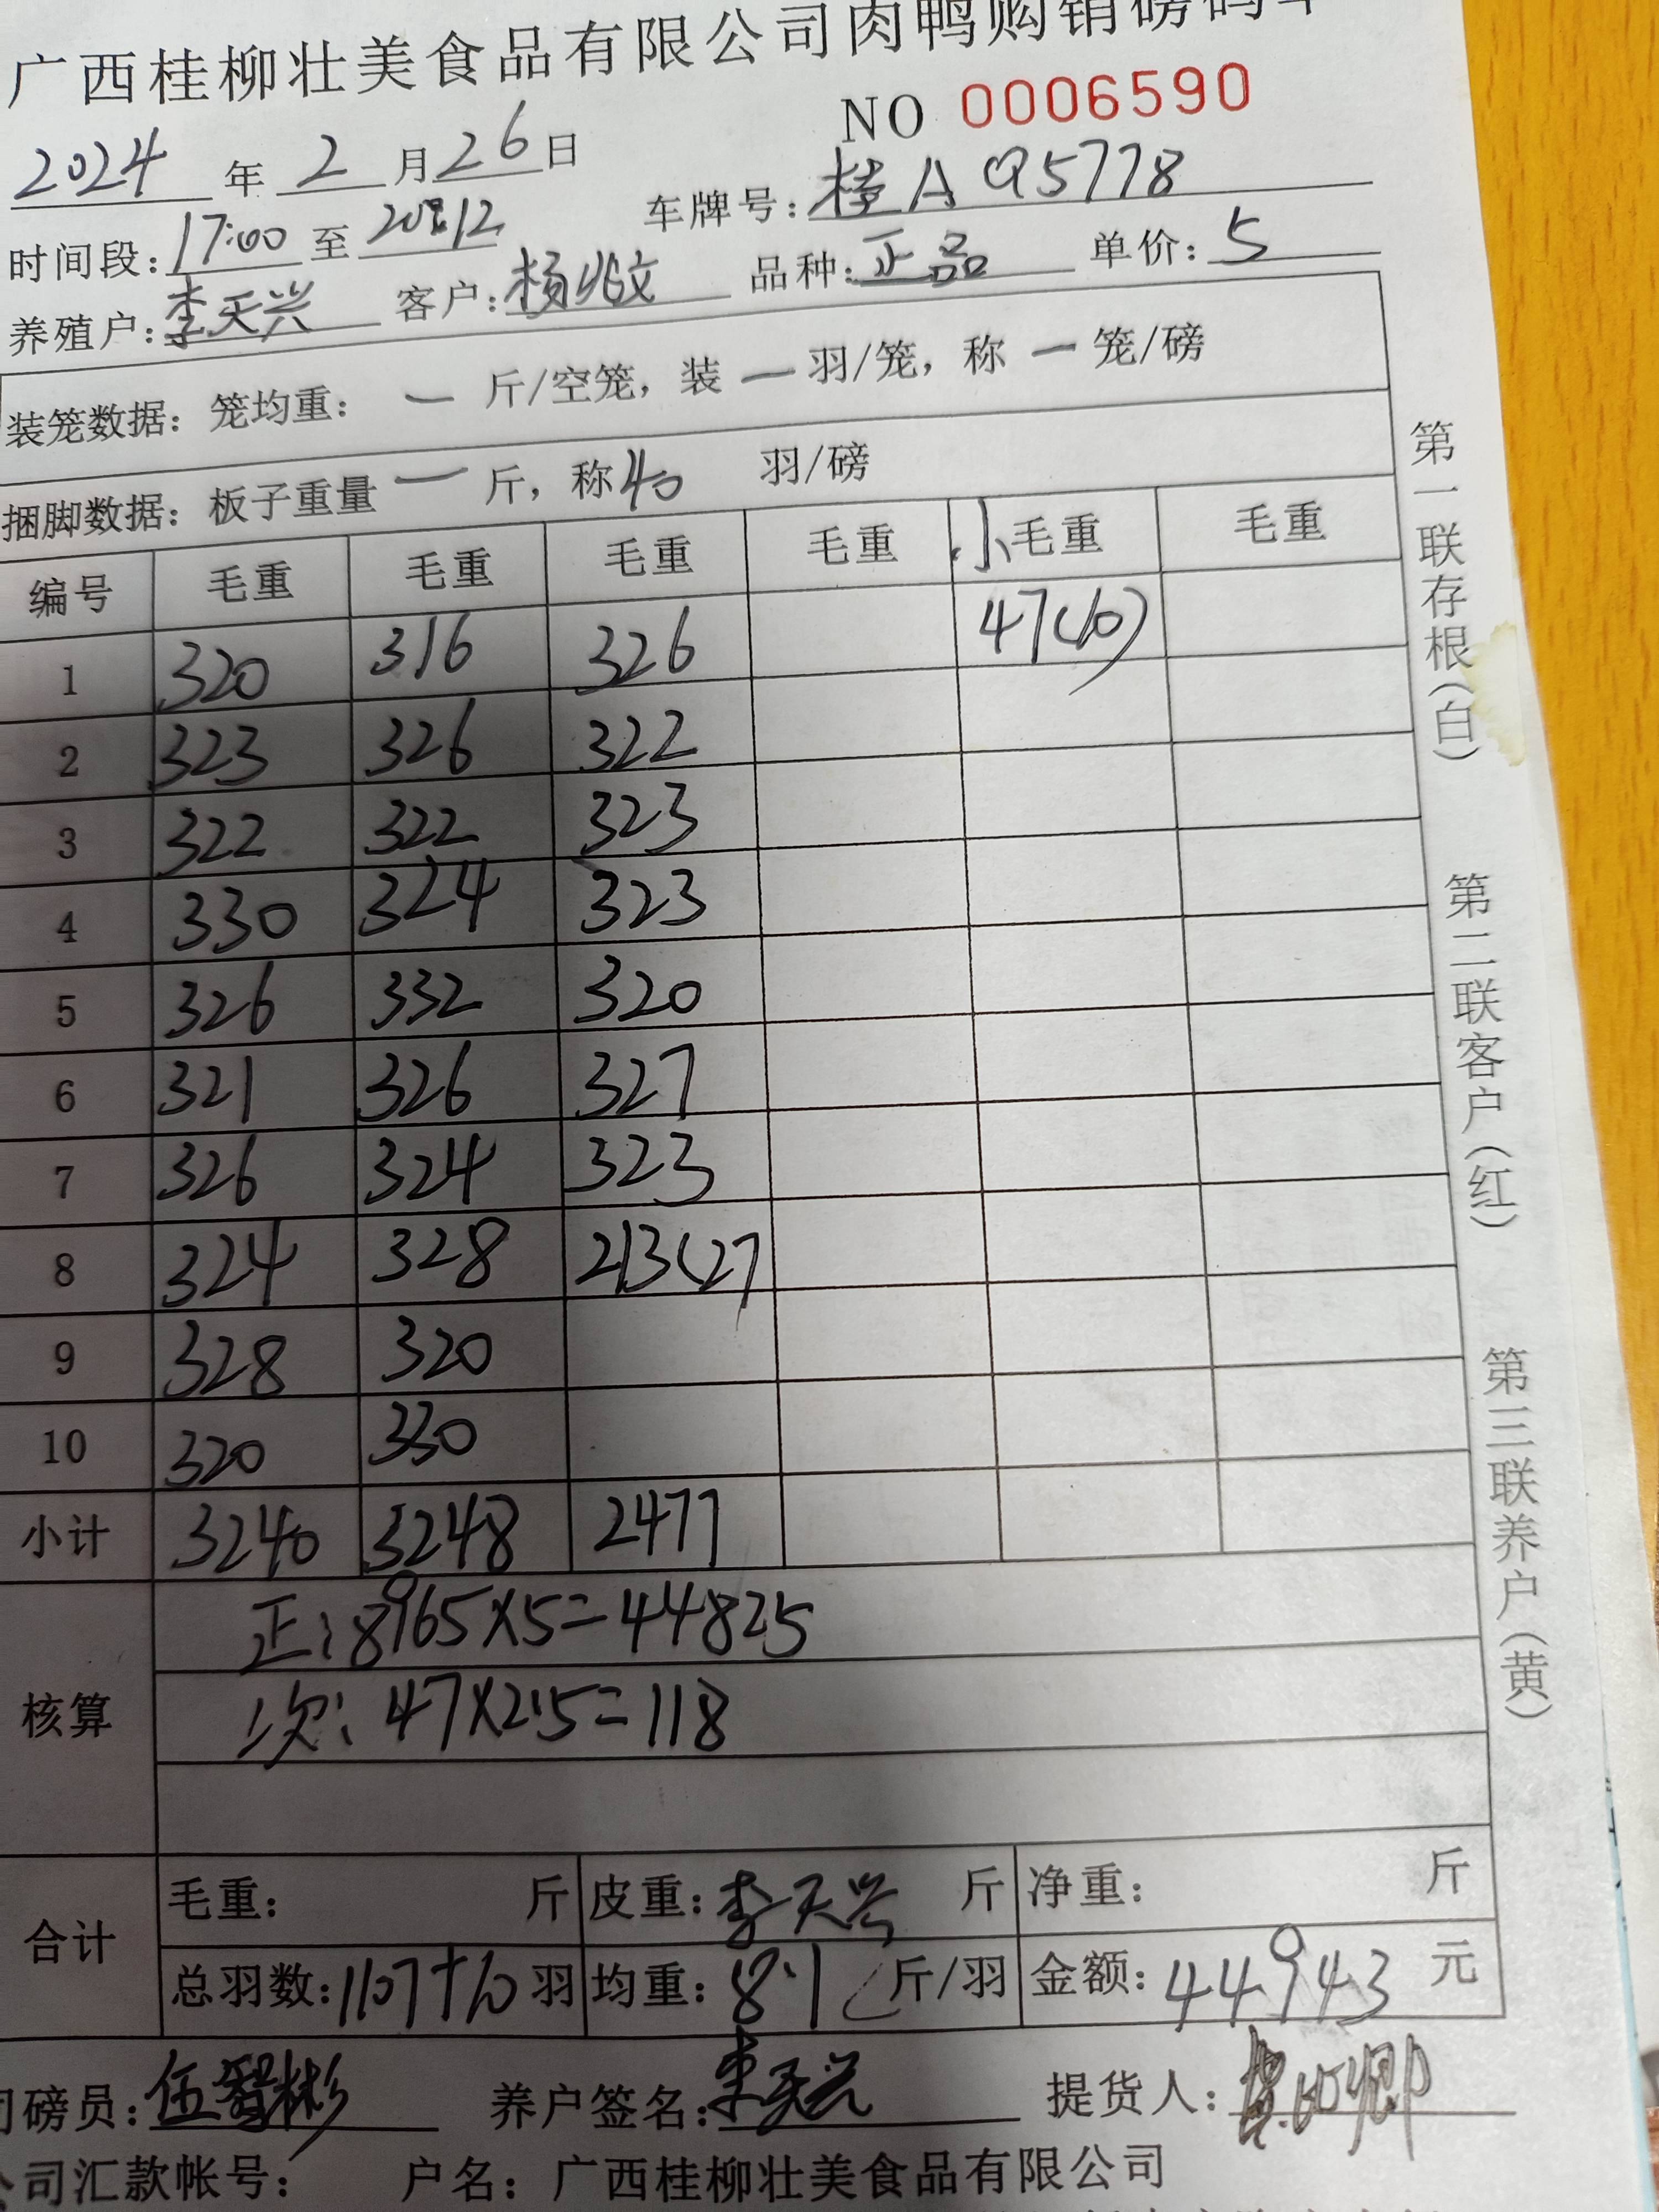 广西桂柳壮美食品有限公司肉鸭购销磅码单
NO 0006590
2024 年 2 月 26 日
时间段: 17:00 至 20:12 车牌号: 桂A Q5778
养殖户: 李天兴 客户: 杨兆文 品种: 正品 单价: 5
装笼数据: 笼均重: — 斤/空笼, 装 — 羽/笼, 称 — 笼/磅
捆脚数据: 板子重量 — 斤, 称 40 羽/磅
编号 毛重 毛重 毛重 毛重 小毛重 毛重
1 320 316 326 47(10)
2 323 326 322
3 322 322 323
4 330 324 323
5 326 332 320
6 321 326 327
7 326 324 323
8 324 328 213(27
9 328 320
10 320 330
小计 3240 3248 2477
核算 正: 8965×5=44825
次: 47×2.5=118
合计 毛重: 斤 皮重: 李天兴 斤 净重: 斤
总羽数: 1107+10 羽 均重: 8.1 斤/羽 金额: 44943 元
司磅员: 伍智彬 养户签名: 李天兴 提货人:
公司汇款帐号: 户名: 广西桂柳壮美食品有限公司
第一联存根(白) 第二联客户(红) 第三联养户(黄)